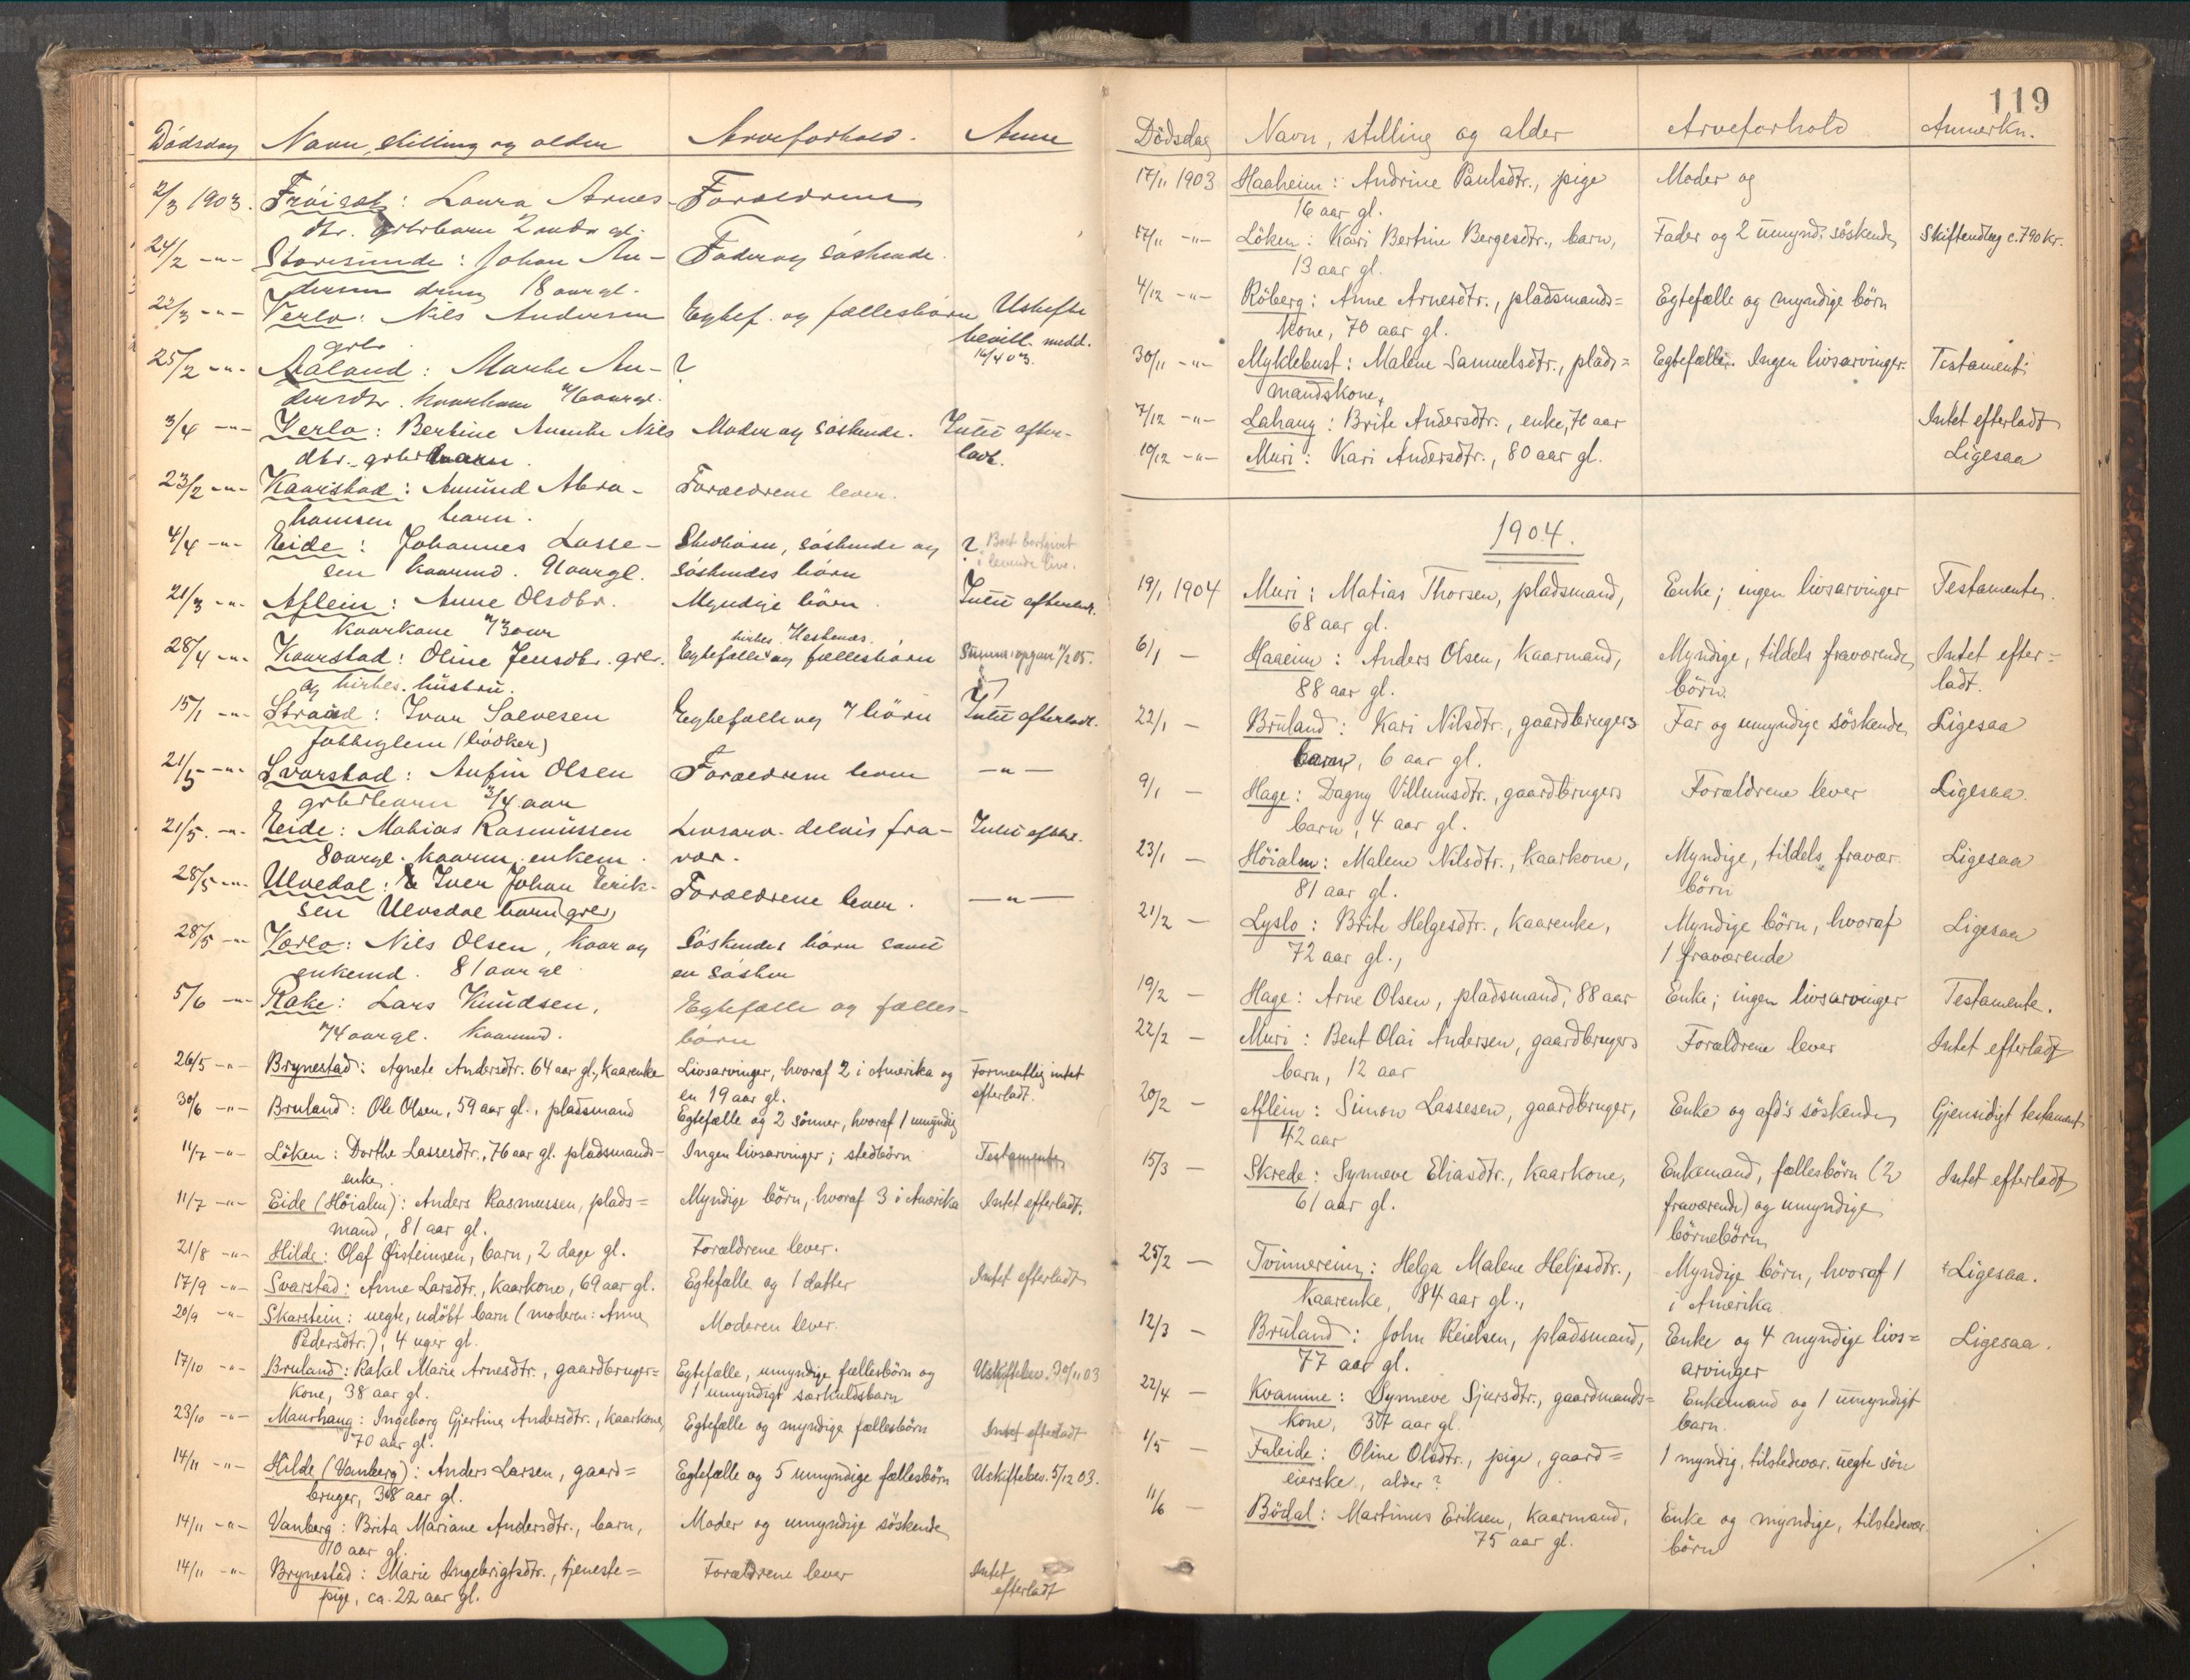 Dödsdag Navn, stilling og alder Arveforhold. Anm
2/3 1903. Fröiset: Laura Arnes- Forældrene
dtr. grbr barn 2 mdr gl.
24/2 -"- Storesunde: Johan An- Fader og söskende.
dersen dreng 18 aar gl.
22/3 -"- Verlo: Nils Andersen Egtef. og fællesbörn Uskifte
grbr. bevill. medd.
16/4 03.
25/2 -"- Aaland: Marthe An- ?
dersdtr. kaarkone 76 aar gl.
3/4 -"- Verlo: Bertine Nils Moder og söskende. Intet efter-
dtr. grbr barn. ladt.
23/2 -"- Kaarstad: Amund Abra- Forældrene lever.
hamsen barn.
4/4 -"- Eide: Johannes Lasse- Stedbörn, söskende og ? Boet bortgivet
sen kaarmd. 91 aar gl. söskendes börn i levende live.
21/3 -"- Aflein: Anne Olsdtr. Myndige börn. Intet efterladt.
kaarkone 73 aar
28/4 -"- Kaarstad: Oline Jensdtr. grbr. Egtefælle og fællesbörn
og kirkes. hustru.
15/1 -"- Strand: Ivar Salvesen Egtefælle og 7 börn Intet efterladt.
fattiglem (bödker)
21/5 -"- Svarstad: Anfin Olsen Forældrene lever -"-
grbrbarn 3/4 aar
21/5. -"- Eide: Mathias Rasmussen Livsarv. delvis fra- Intet efterl.
80 aar gl. kaarm. enkem. vær.
28/5 -"- Ulvedal: Iver Johan Erik- Forældrene lever. -"-
sen Ulvedal barn (grbr)
28/5 -"- Værlo: Nils Olsen, kaar og Söskendes börn samt
enkemd. 81 aar gl en söster
5/6 -"- Rake: Lars Knudsen, Egtefælle og fælles-
74 aar gl. kaarmd. börn
26/5 -"- Brynestad: Agnete Andersdtr. 64 aar gl., kaarenke Livsarvinger, hvoraf 2 i Amerika og Formentlig intet
en 19 aar gl. efterladt.
30/6 -"- Bruland: Ole Olsen, 59 aar gl., pladsmand Egtefælle og 2 sönner, hvoraf 1 umyndig
11/7 -"- Löken: Dorthe Lassesdtr., 76 aar gl. pladsmands- Ingen livsarvinger; stedbörn Testamente
enke.
11/7 -"- Eide (Höialm): Anders Rasmussen, plads= Myndige börn, hvoraf 3 i Amerika Intet efterladt.
mand, 81 aar gl.
21/8 -"- Hilde: Olaf Öisteinsen, barn, 2 dage gl. Forældrene lever.
17/9 -"- Svarstad: Anne Larsdtr., kaarkone, 69 aar gl. Egtefælle og 1 datter Intet efterladt
20/9 -"- Skarstein: uegte, udöbt barn (moderen: Anne Moderen lever.
Pedersdtr.), 4 uger gl.
17/10 -"- Bruland: Rakel Marie Arnesdtr., gaardbruger= Egtefælle, umyndige fællesbörn og Uskiftebev. 30/11 03
kone, 38 aar gl. 1 umyndigt særkuldsbarn
23/10 -"- Maurhaug: Ingeborg Gjertine Andersdtr., kaarkone, Egtefælle og myndige fællesbörn Intet efterladt
70 aar gl.
14/11 -"- Hilde (Vanberg): Anders Larsen, gaard= Egtefælle og 5 umyndige fællesbörn Uskiftebev. 5/12 03.
bruger, 38 aar gl.
14/11 -"- Vanberg: Brita Mariane Andersdtr., barn, Moder og umyndige söskende
10 aar gl.
14/11 -"- Brynestad: Marie Ingebrigtsdtr., tjeneste= Forældrene lever Intet
pige, ca. 22 aar gl. efterladt
119
Dödsdag Navn, stilling og alder Arveforhold Anmerkn.
17/11 1903 Haaheim: Andrine Paulsdtr., pige Moder og
16 aar gl.
17/11 -"- Löken: Kari Bertine Bergesdtr., barn, Fader og 2 umynd. söskende Skifteudlæg c. 790 kr.
13 aar gl.
4/12 -"- Röberg: Anne Arnesdtr., pladsmands= Egtefælle og myndige börn
kone, 70 aar gl.
30/11 -"- Myklebust: Malene Samuelsdtr., plads= Egtefælle. Ingen livsarvinger. Testament.
mandskone,
7/12 -"- Lahaug: Brite Andersdtr., enke, 70 aar Intet efterladt
10/12 -"- Muri: Kari Andersdtr., 80 aar gl. Ligesaa
1904.
19/1 1904 Muri: Matias Thorsen, pladsmand, Enke; ingen livsarvinger Testamente.
68 aar gl.
6/1 - Haaeim: Anders Olsen, kaarmand, Myndige, tildels fraværende Intet efter=
88 aar gl. börn. ladt.
22/1 - Bruland: Kari Nilsdtr., gaardbrugers Far og umyndige söskende Ligesaa
barn, 6 aar gl.
9/1 - Hage: Dagny Villumsdtr., gaardbrugers Forældrene lever Ligesaa.
barn, 4 aar gl.
23/1 - Höialm: Malene Nilsdtr., kaarkone, Myndige, tildels fravær. Ligesaa
81 aar gl. börn
21/2 - Lyslo: Brite Helgesdtr., kaarenke, Myndige börn, hvoraf Ligesaa
72 aar gl., 1 fraværende
19/2 - Hage: Arne Olsen, pladsmand, 88 aar Enke; ingen livsarvinger Testamente.
22/2 - Muri: Bent Olai Andersen, gaardbrugers Forældrene lever Intet efterladt
barn, 12 aar
20/2 - Aflein: Simon Lassesen, gaardbruger, Enke og afd's söskende Gjensidigt testament
42 aar
15/3 - Skrede: Synneve Eliasdtr., kaarkone, Enkemand, fællesbörn (2 Intet efterladt
61 aar gl. fraværende) og umyndige
börnebörn
25/2 - Tvinnereim: Helga Malene Heljesdtr., Myndige börn, hvoraf 1 Ligesaa.
kaarenke, 84 aar gl., i Amerika.
12/3 - Bruland: John Reielsen, pladsmand, Enke og 4 myndige livs= Ligesaa.
77 aar gl. arvinger
22/4 - Kvamme: Synneve Sjursdtr., gaardmands= Enkemand og 1 umyndigt
kone, 37 aar gl. barn.
1/5 - Faleide: Oline Olsdtr., pige, gaard= 1 myndig, tilstedevær. uegte sön
eierske, alder?
11/6 - Bödal: Martinus Eriksen, kaarmand, Enke og myndige, tilstedevær.
75 aar gl. börn